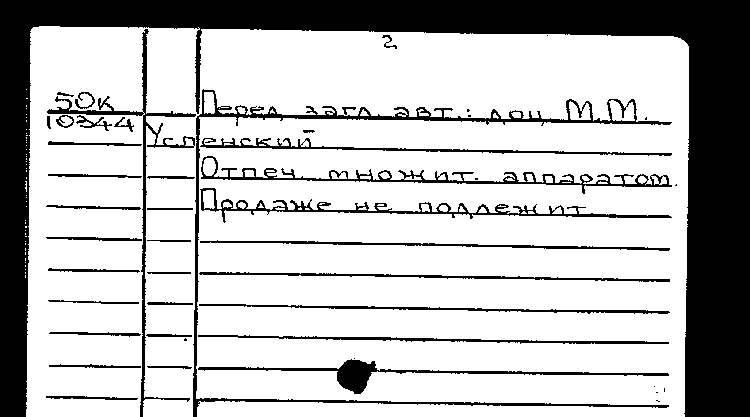 2
50К Перед загл. авт.: доц. М.М.
10344 Успенский.
Отпеч. множит. аппаратом.
Продаже не подлежит.